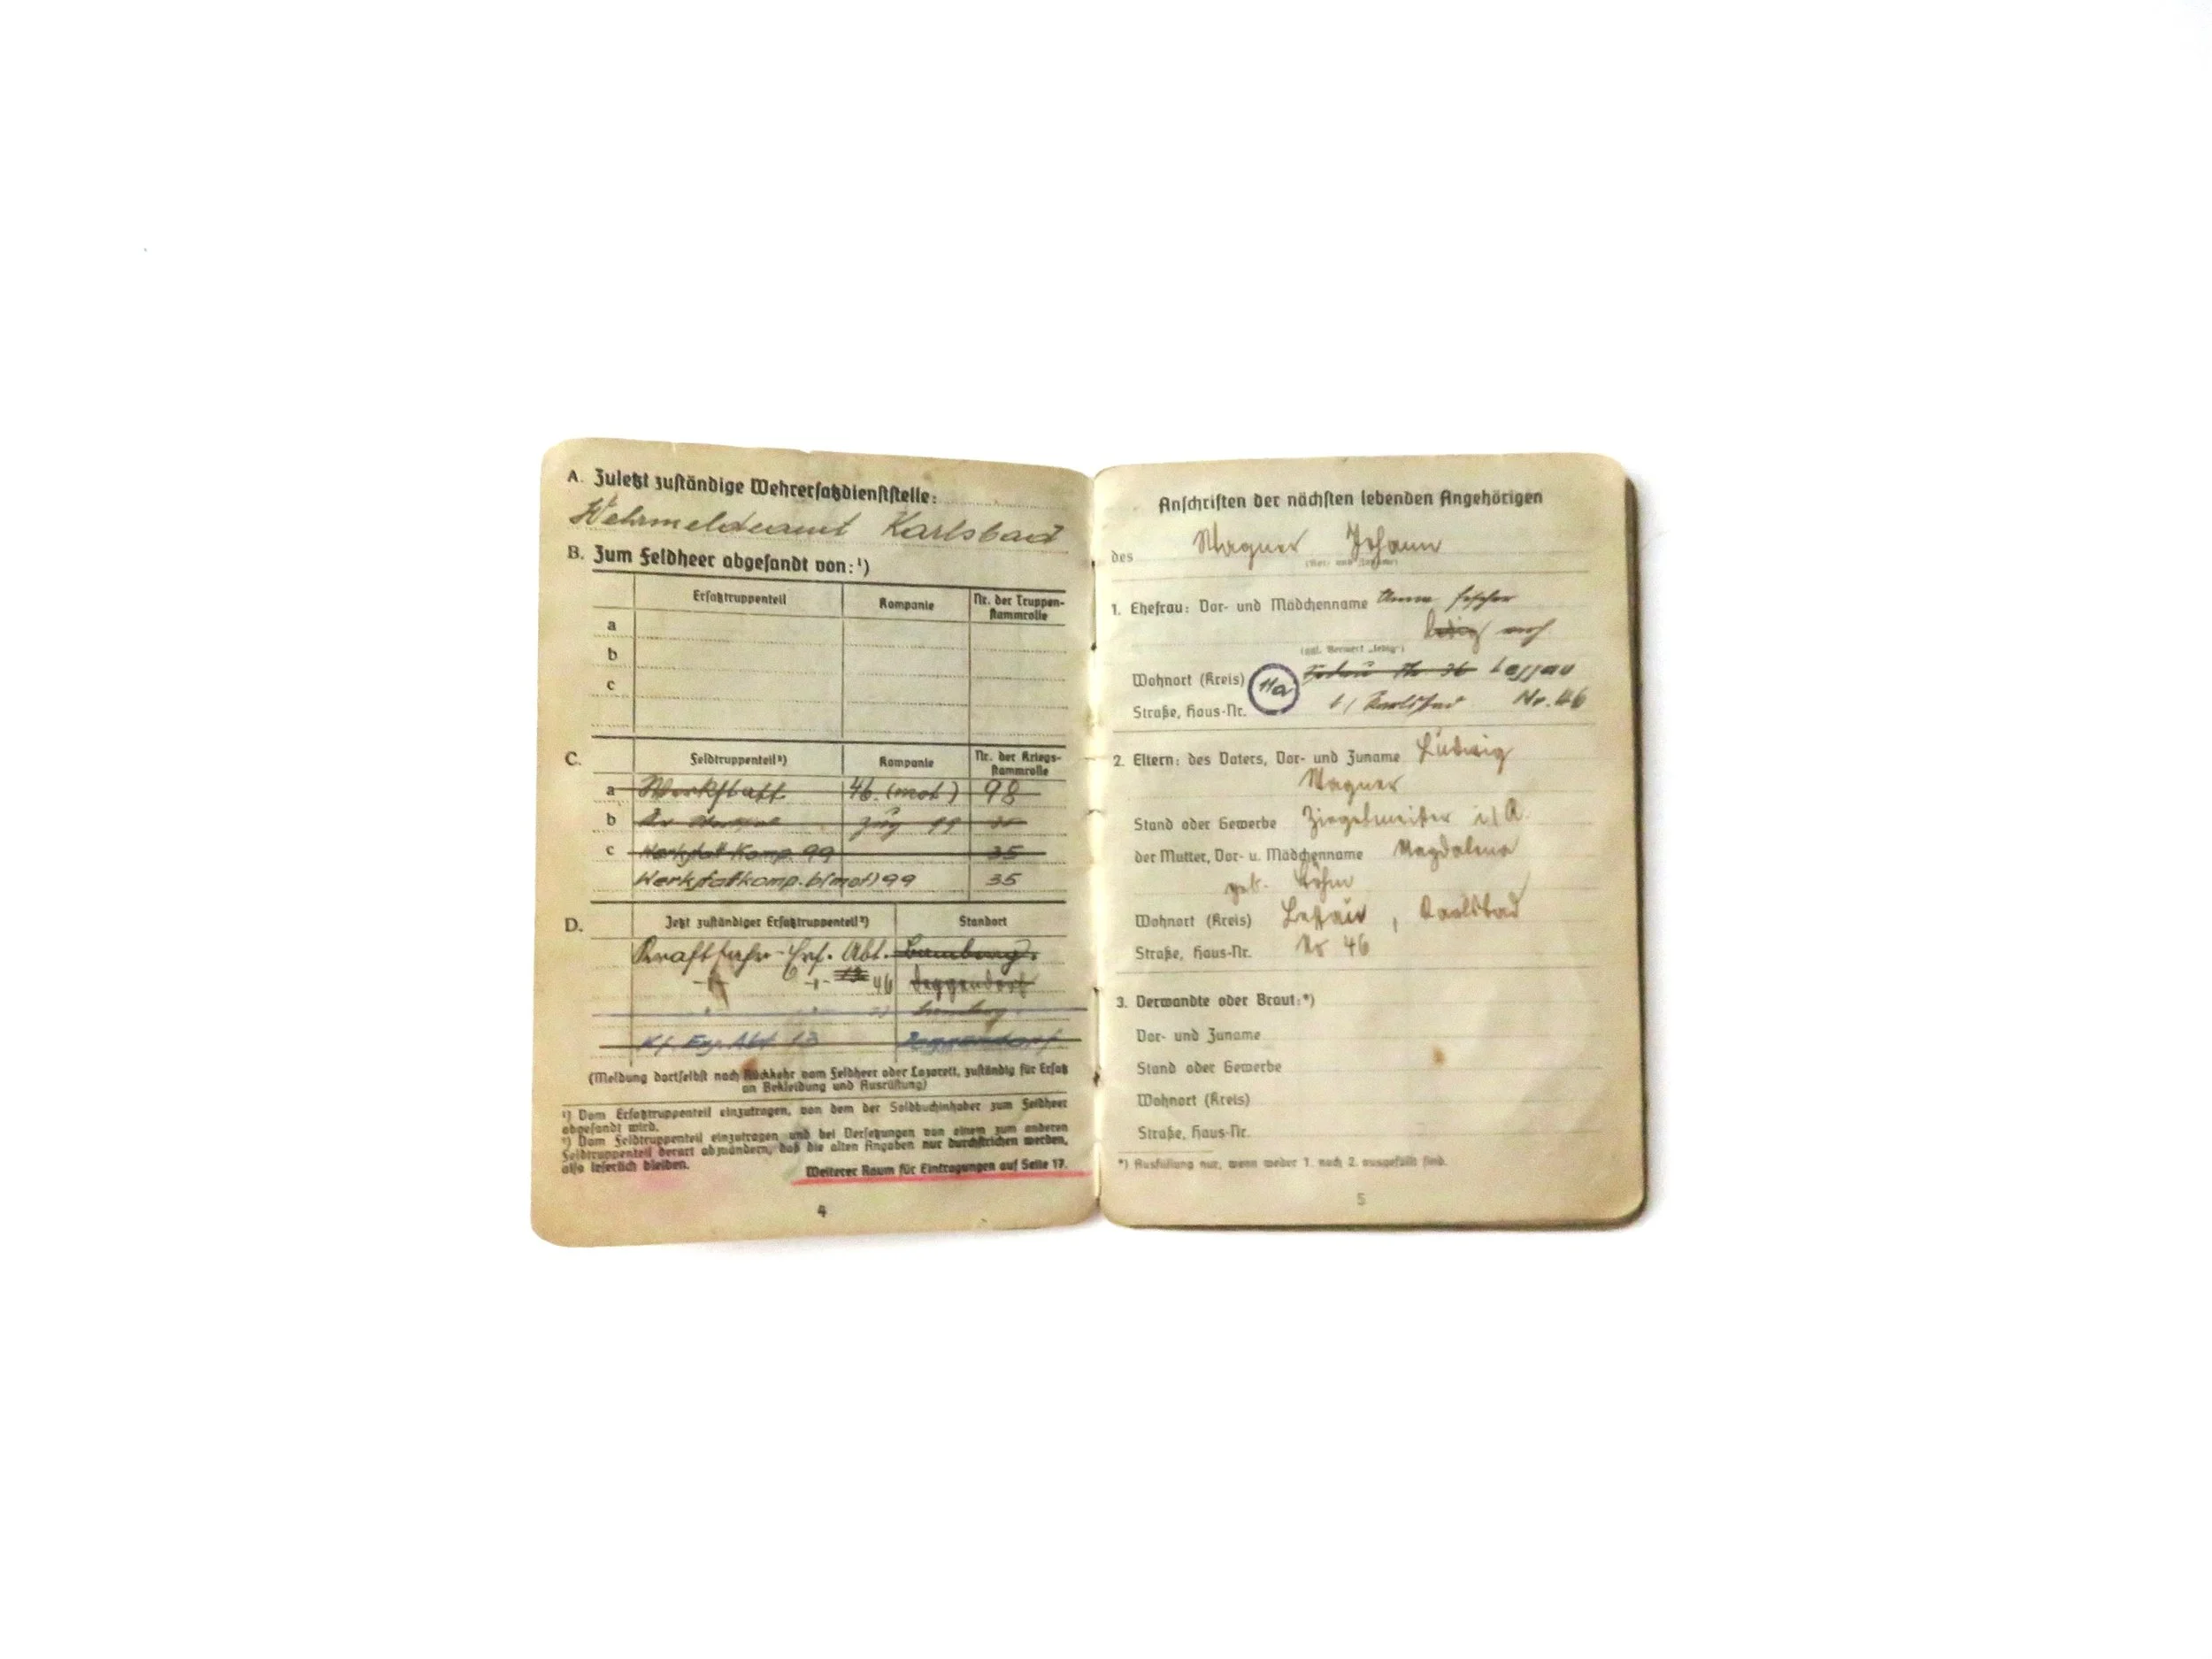 A. Zuletzt zuständige Wehrersatzdienststelle:
Wehrmeldeamt Karlsbad
B. Zum Feldheer abgesandt von:¹)
Ersatztruppenteil Kompanie Nr. der Truppen-
stammrolle
a
b
c
C. Feldtruppenteil²) Kompanie Nr. der Kriegs-
stammrolle
a Werkstatt 46. (mot) 98
b Zug 99
c Werkstatt Komp. 99 35
Werkstatkomp. b(mot) 99 35
D. Jetzt zuständiger Ersatztruppenteil²) Standort
Kraftfahr-Ers. Abt. Bamberg.
13 46 Deggendorf
Bamberg.
Kf. Ers. Abt 13 Deggendorf.
(Meldung dortselbst nach Rückkehr vom Feldheer oder Lazarett, zuständig für Ersatz
an Bekleidung und Ausrüstung)
¹) Vom Ersatztruppenteil einzutragen, von dem der Soldbuchinhaber zum Feldheer
abgesandt wird.
²) Vom Feldtruppenteil einzutragen und bei Versetzungen von einem zum anderen
Feldtruppenteil derart abzuändern, daß die alten Angaben nur durchstrichen werden,
also leserlich bleiben.
Weiterer Raum für Eintragungen auf Seite 17.
4
Anschriften der nächsten lebenden Angehörigen
des Wagner Johann
(Vor- und Zuname)
1. Ehefrau: Vor- und Mädchenname Anna Fischer
ledig
(ggf. Vermerk „ledig")
Wohnort (Kreis) 11a Nr 36 Lessau
Straße, Haus-Nr. b/ Karlsbad No. 46
2. Eltern: des Vaters, Vor- und Zuname Ludwig
Wagner
Stand oder Gewerbe Ziegelmeister i/R.
der Mutter, Vor- u. Mädchenname Magdalena
geb. Böhm
Wohnort (Kreis) Lessau, Karlsbad
Straße, Haus-Nr. No 46
3. Verwandte oder Braut:*)
Vor- und Zuname
Stand oder Gewerbe
Wohnort (Kreis)
Straße, Haus-Nr.
*) Ausfüllung nur, wenn weder 1. noch 2. ausgefüllt sind.
5